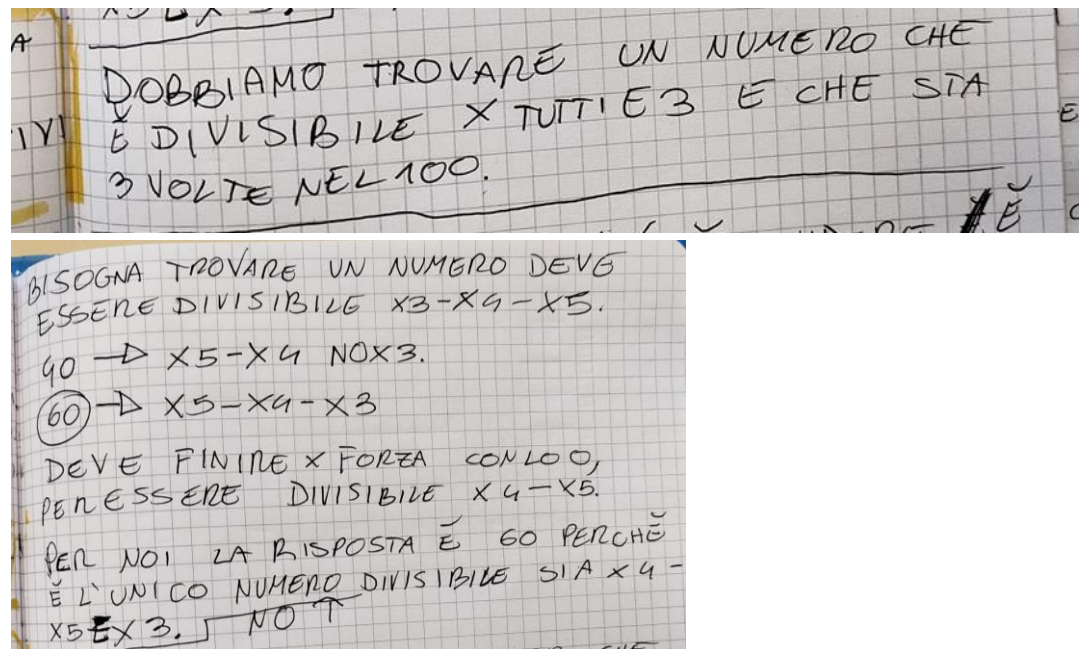 DOBBIAMO TROVARE UN NUMERO CHE
È DIVISIBILE X TUTTI E 3 E CHE STA
3 VOLTE NEL 100.
BISOGNA TROVARE UN NUMERO DEVE
ESSERE DIVISIBILE X3-X4-X5.
40 → X5-X4 NO X3.
60 → X5-X4-X3
DEVE FINIRE X FORZA CON LO 0,
PER ESSERE DIVISIBILE X4-X5.
PER NOI LA RISPOSTA È 60 PERCHÈ
È L'UNICO NUMERO DIVISIBILE SIA X4-
X5 E X3. NO ↑